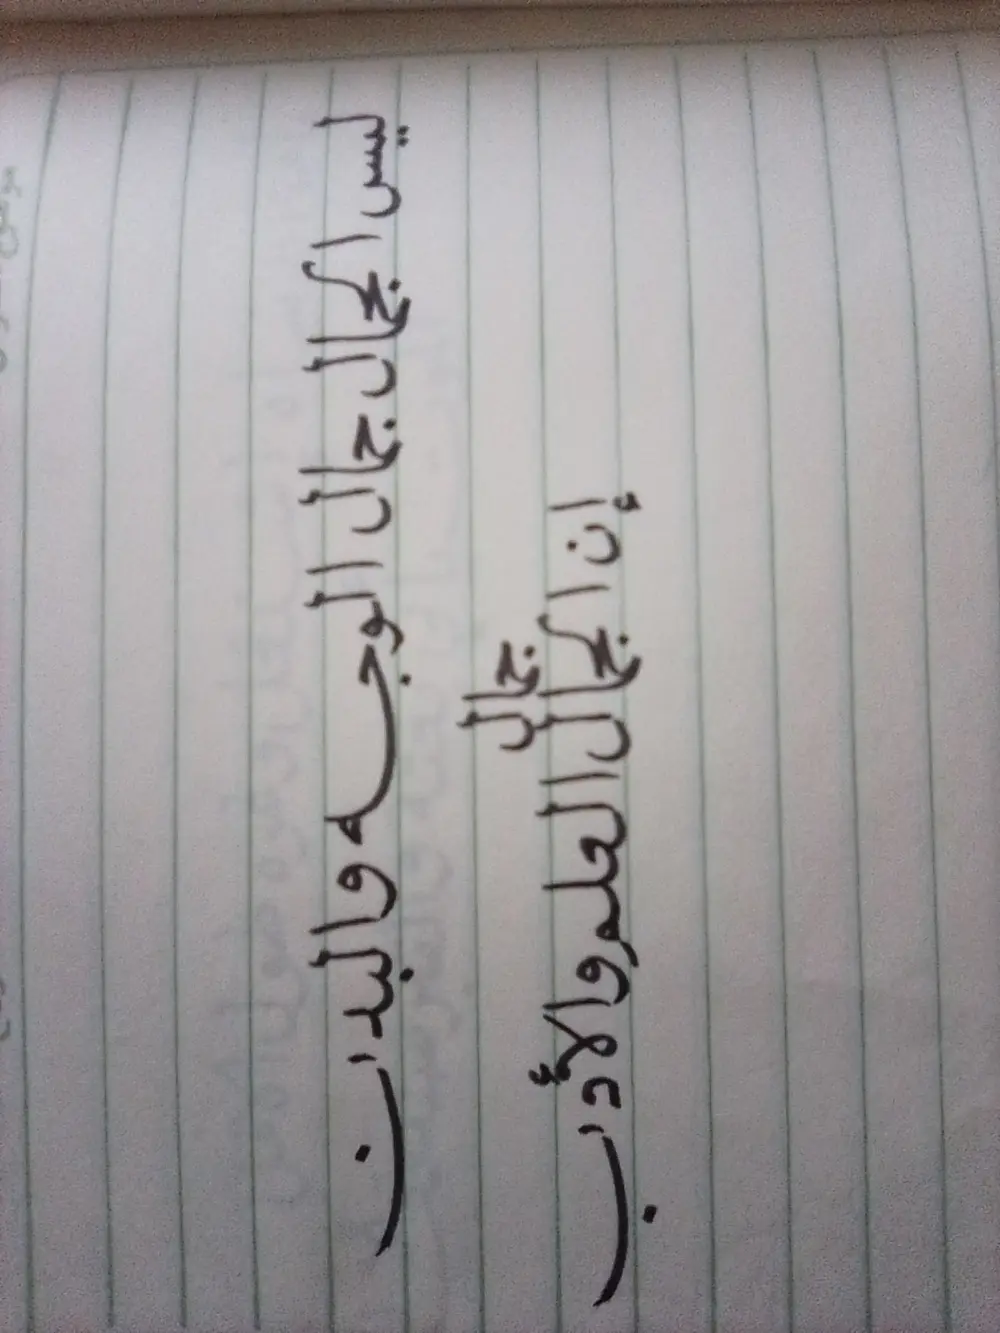 ليس الجمال جمال الوجه والبدن
إن الجمال جمال العلم والأدب